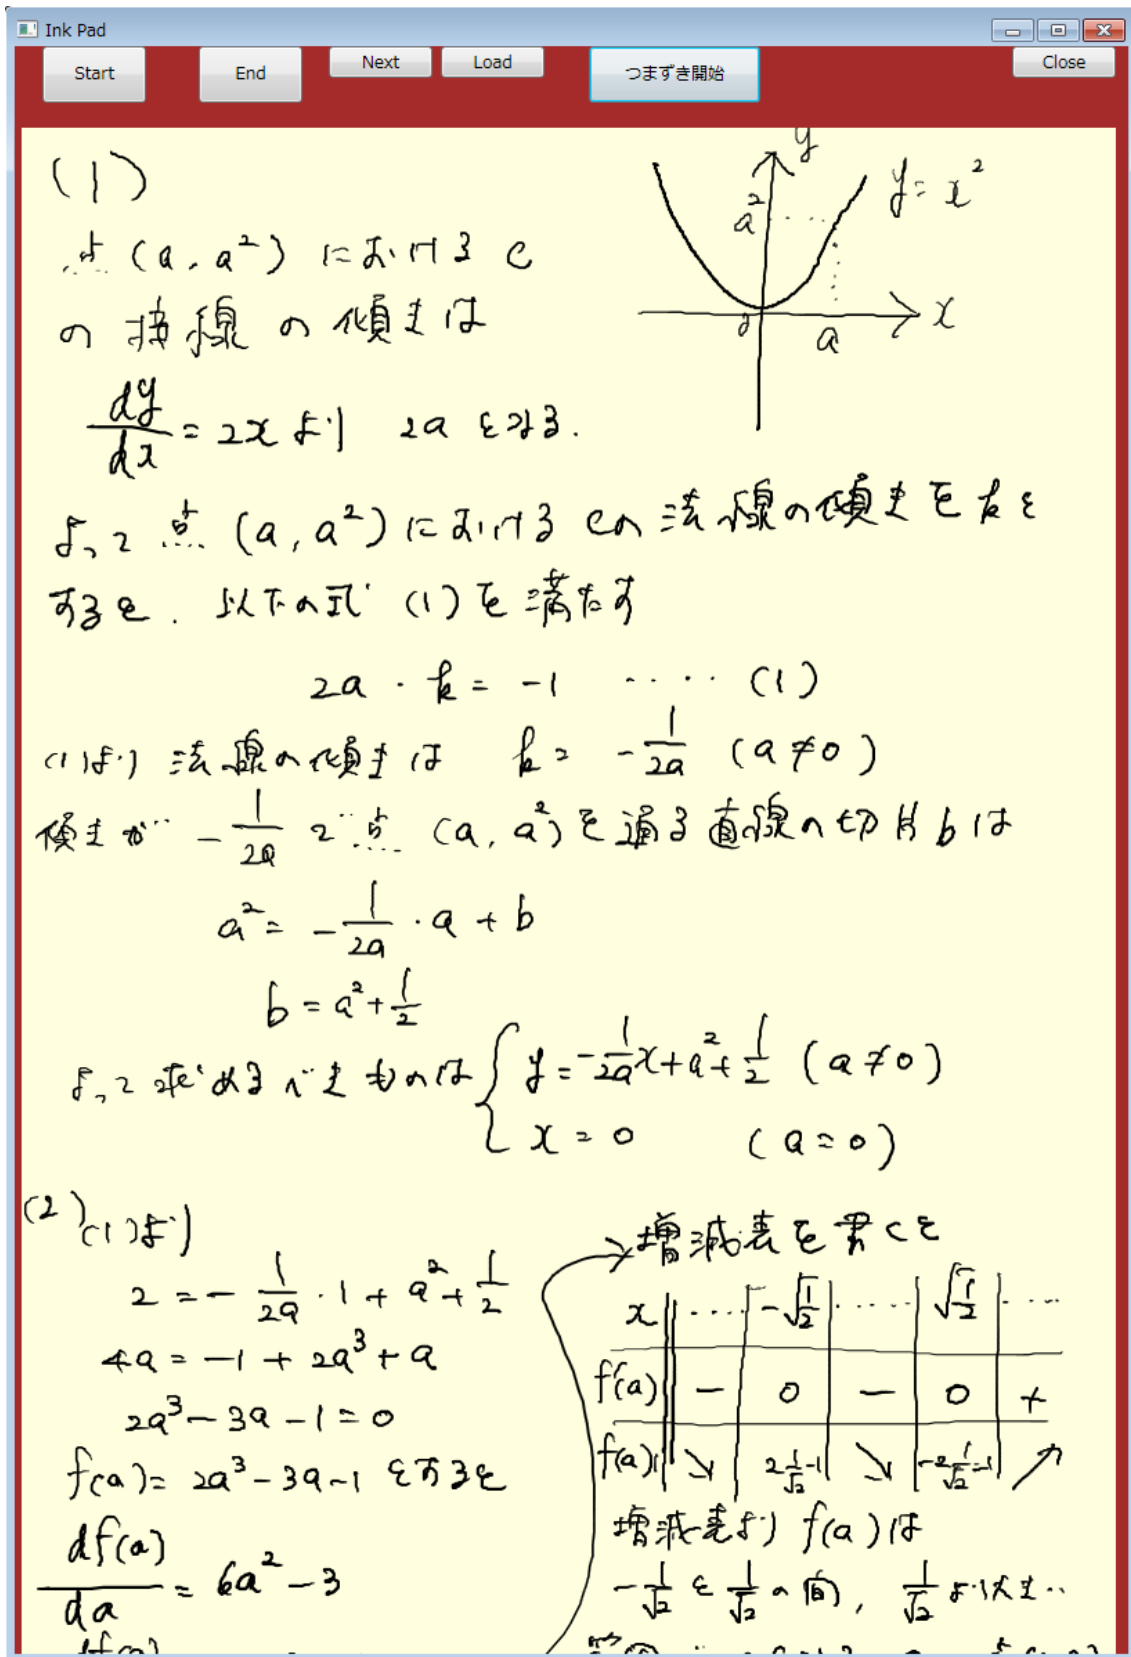 Ink Pad
Start End Next Load つまずき開始 Close
(1)
点 (a, a²) における C
の接線の傾きは
dy/dx = 2x より 2a となる.
y
y = x²
a²
0 a x
よって 点 (a, a²) における Cの法線の傾きを kと
すると. 以下の式 (1) を満たす
2a · k = -1 ‥‥ (1)
(1)より 法線の傾きは k = -1/2a (a≠0)
傾きが -1/2a で 点 (a, a²) を通る直線の切片 b は
a² = -1/2a · a + b
b = a² + 1/2
よって求めるべきものは { y = -1/2a x + a² + 1/2 (a≠0)
x = 0 (a = 0)
(2) (1)より
2 = -1/2a · 1 + a² + 1/2
4a = -1 + 2a³ + a
2a³ - 3a - 1 = 0
f(a) = 2a³ - 3a - 1 とすると
df(a)/da = 6a² - 3
増減表を書くと
x ‥‥ -√1/2 ‥‥ √1/2 ‥‥
f'(a) - 0 - 0 +
f(a) ↘ 2 1/√2 -1 ↘ -2 1/√2 -1 ↗
増減表より f(a) は
-1/√2 と 1/√2 の間, 1/√2 より大き‥